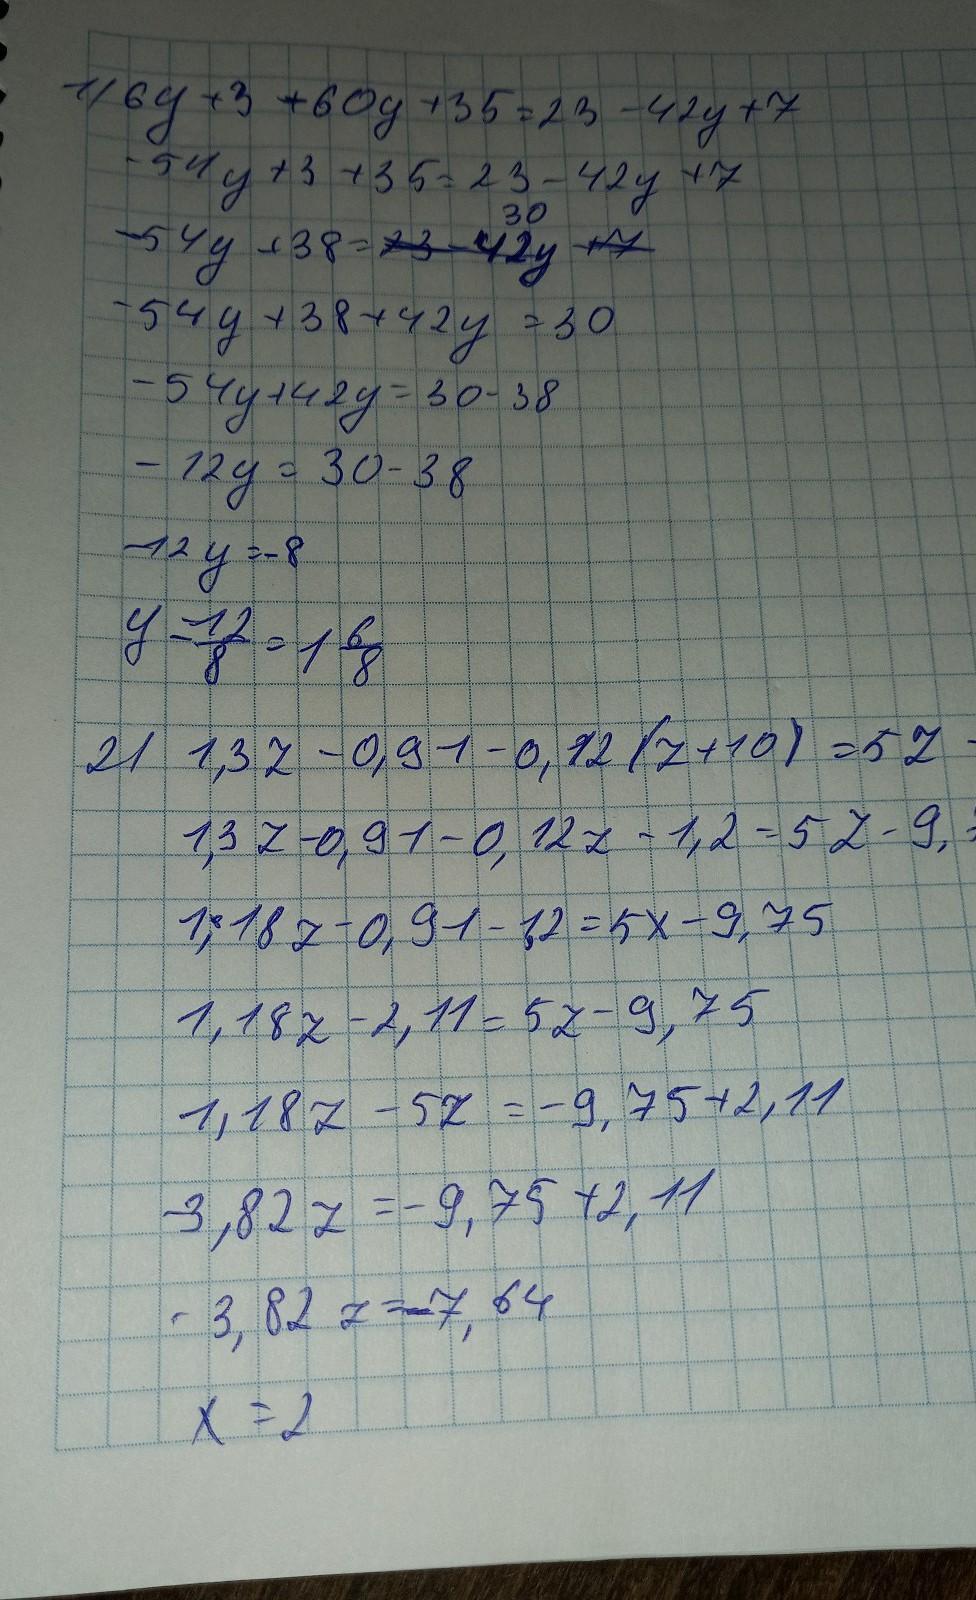 1) 6y+3+60y+35=23-42y+7
-54y+3+35=23-42y+7
30
-54y+38=23-42y+7
-54y+38+42y=30
-54y+42y=30-38
-12y=30-38
-12y=-8
y=12/8=1 6/8
2) 1,3z-0,91-0,12(z+10)=5z-
1,3z-0,91-0,12z-1,2=5z-9,
1,18z-0,91-1,2=5x-9,75
1,18z-2,11=5z-9,75
1,18z-5z=-9,75+2,11
-3,82z=-9,75+2,11
-3,82z=-7,64
x=2